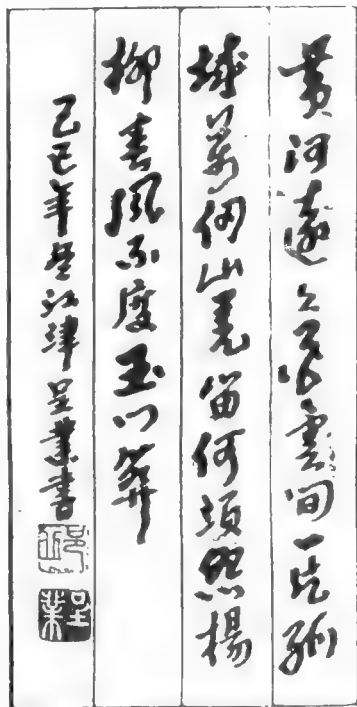 黄河遠上白雲间一片孤
城萬仞山羌笛何須怨楊
柳春風不度玉门關
己巳年江津呈業書
呈業